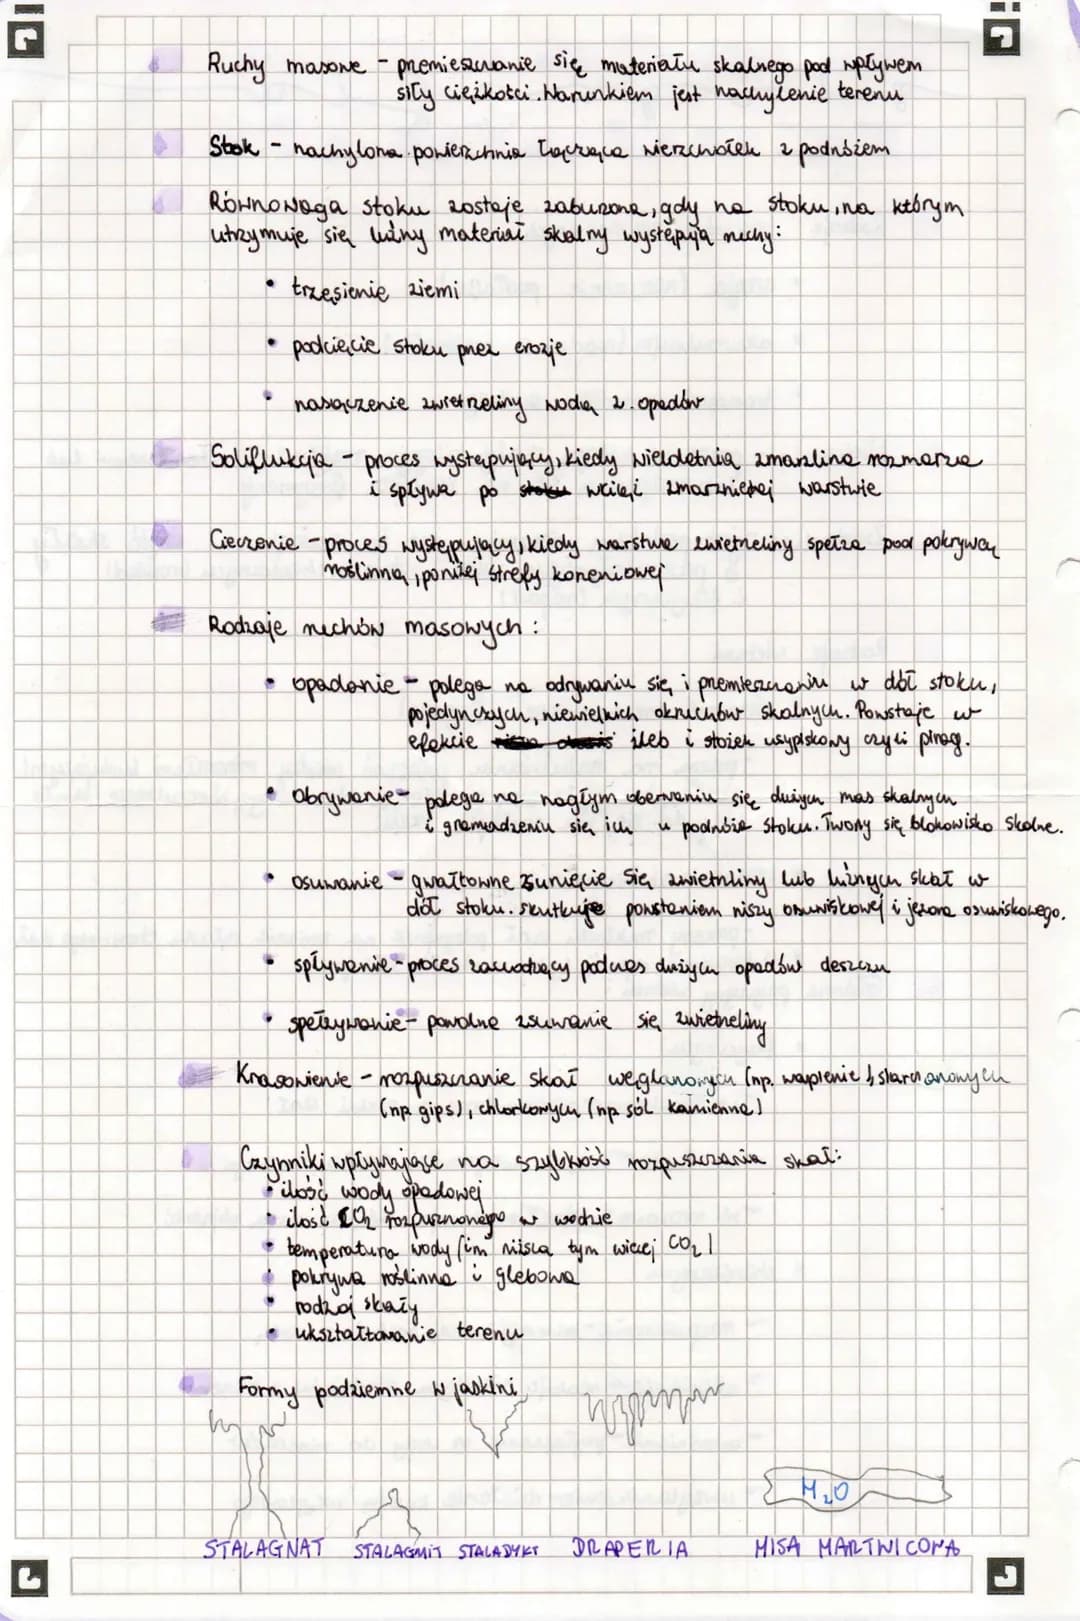 Ruchy masowe - przemieszczanie się materiału skalnego pod wpływem
siły ciężkości. Warunkiem jest nachylenie terenu
Stok - nachylona powierzchnia łącząca wierzchołek z podnóżem
Równowaga stoku zostaje zaburzona, gdy na stoku, na którym
utrzymuje się luźny materiał skalny występują ruchy:
• trzęsienie ziemi
• podcięcie stoku przez erozje
• nasączenie zwietrzeliny wodą z opadów
Soliflukcja - proces występujący, kiedy wieloletnia zmarzlina rozmarza
i spływa po stoku wciąż zmarzniętej warstwie
Cieczenie - proces występujący, kiedy warstwa zwietrzeliny spełza pod pokrywą
roślinną, poniżej strefy korzeniowej
Rodzaje ruchów masowych:
• opadanie - polega na odrywaniu się i przemieszczaniu w dół stoku,
pojedynczych, niewielkich okruchów skalnych. Powstaje w
efekcie żleb i stożek usypiskowy czyli piarg.
• Obrywanie - polega na nagłym oberwaniu się dużych mas skalnych
i gromadzeniu się ich u podnóża stoku. Tworzy się blokowisko skalne.
• osuwanie - gwałtowne zsunięcie się zwietrzliny lub luźnych skał w
dół stoku. skutkuje powstaniem niszy osuwiskowej i jeziora osuwiskowego.
• spływanie - proces zachodzący podczas dużych opadów deszczu
• spełzywanie - powolne zsuwanie się zwietrzeliny
Krasowienie - rozpuszczanie skał węglanowych (np. wapienie), siarczanowych
(np gips), chlorkowych (np sól kamienna)
Czynniki wpływające na szybkość rozpuszczania skał:
• ilość wody opadowej
• ilość CO₂ rozpuszczonego w wodzie
• temperatura wody (im niższa tym więcej CO₂)
• pokrywa roślinna i glebowa
• rodzaj skały
• ukształtowanie terenu
Formy podziemne w jaskini
H₂O
STALAGNAT STALAGMIT STALADYKT DRAPERIA MISA MARTWICOWA